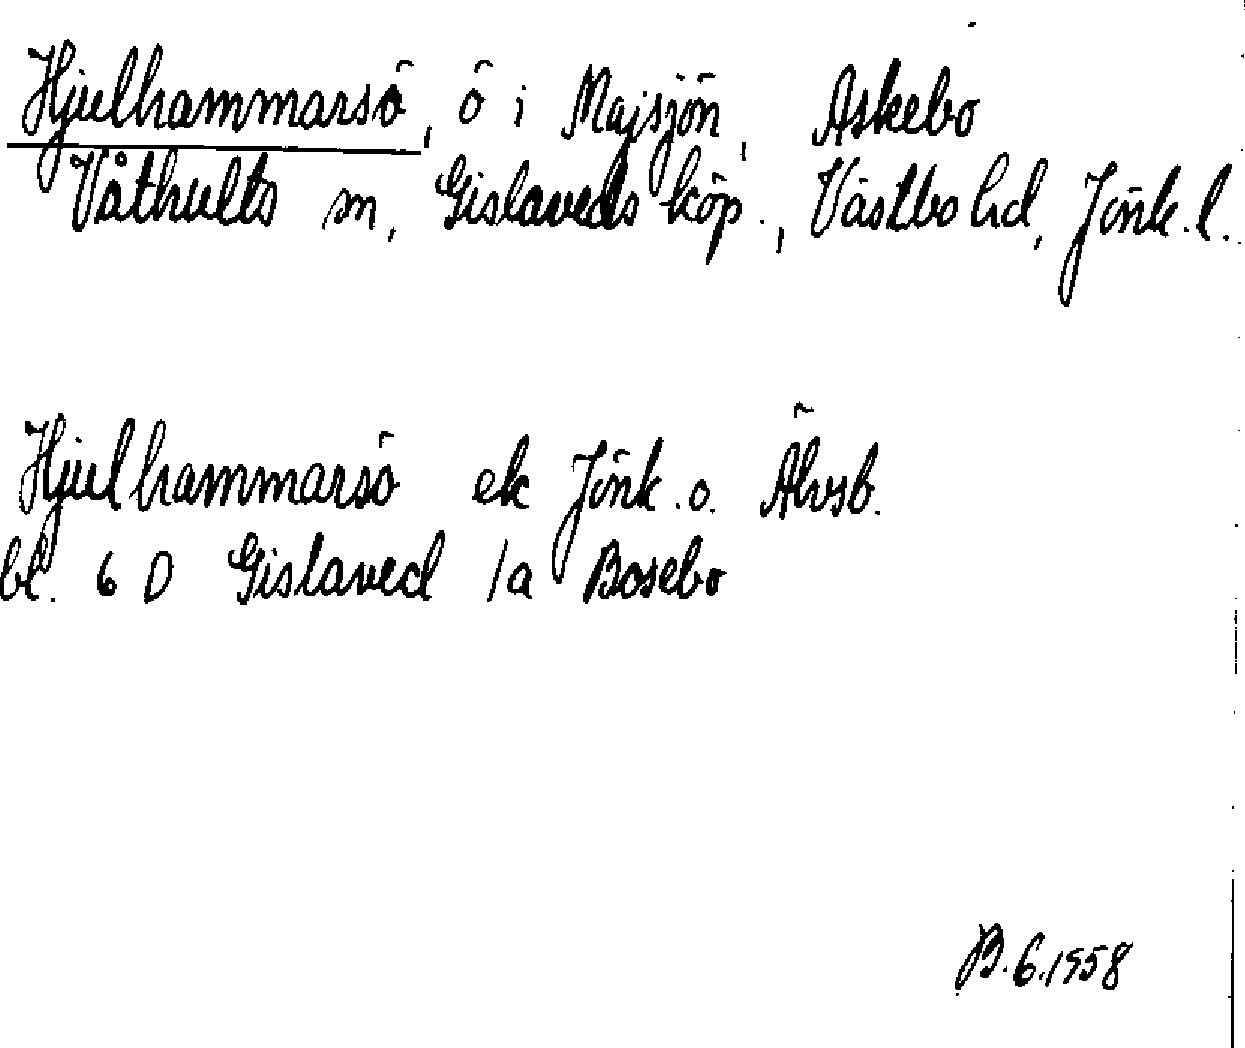 Hjulhammarsö, ö i Majsjön, Askebo
Våthults sn, Gislaveds köp., Västbo hd, Jönk. l.
Hjulhammarsö ek Jönk. o. Älvsb.
bl. 6 D Gislaved 1a Bosebo
B.6.1958